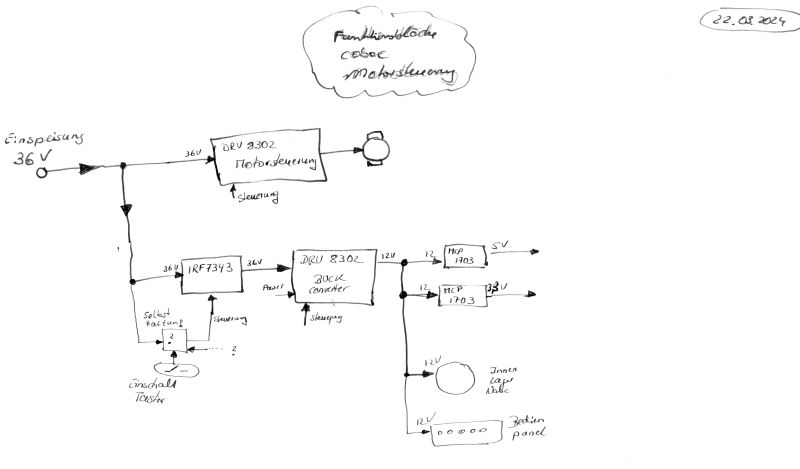 22.09.2024
Funktionsblöcke
coboc
Motorsteuerung
Einspeisung
36V
36V
DRV 8302
Motorsteuerung
Steuerung
36V
IRF7343
36V
DRV 8302
BUCK
Converter
Power
Steuerung
12V
12
MCP
1703
5V
12
MCP
1703
3,3V
Selbst
haltung
?
Steuerung
?
Einschalt
Taster
12V
Innen
Lager
12V
Bedien
panel